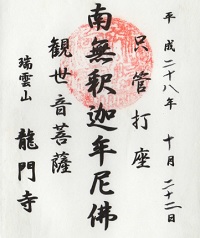 平成二十八年 十月 二十二日
只管打座
南無釈迦牟尼佛
観世音菩薩
瑞雲山 龍門寺